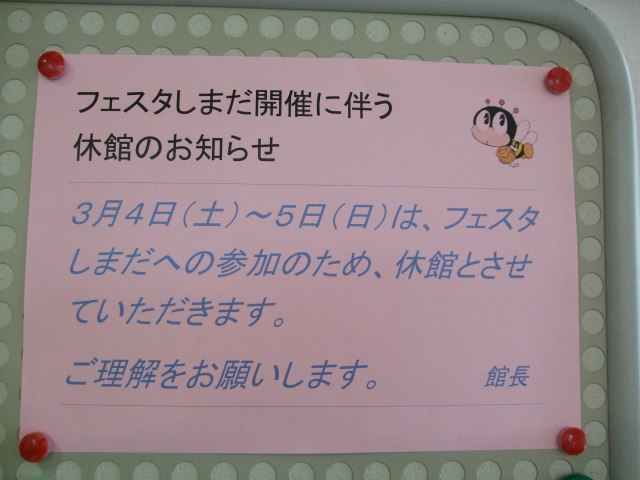 フェスタしまだ開催に伴う
休館のお知らせ
３月４日（土）～５日（日）は、フェスタ
しまだへの参加のため、休館とさせ
ていただきます。
ご理解をお願いします。　館長